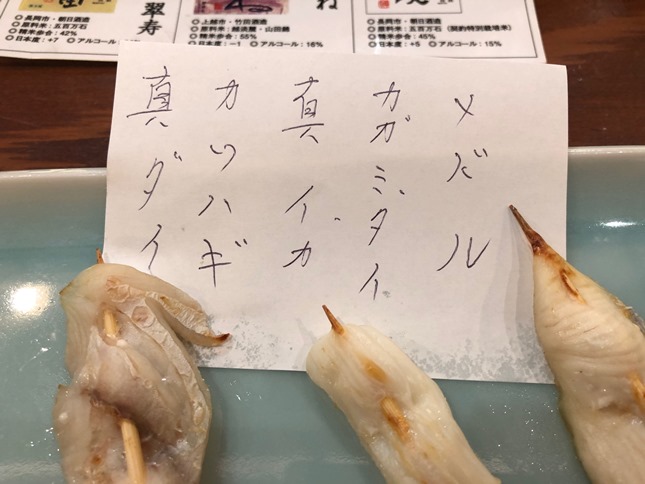 翠寿
ね
◎長岡市・朝日酒造
◎原料米：五百万石
◎精米歩合：42%
◎日本度：+7 ◎アルコール：
◎上越市・竹田酒造
◎原料米：越淡麗・山田錦
◎精米歩合：55%
◎日本度：−1 ◎アルコール：16%
◎長岡市・朝日酒造
◎原料米：五百万石（契約特別栽培米）
◎精米歩合：45%
◎日本度：+5 ◎アルコール：15%
メバル
カガミダイ
真イカ
カワハギ
真ダイ